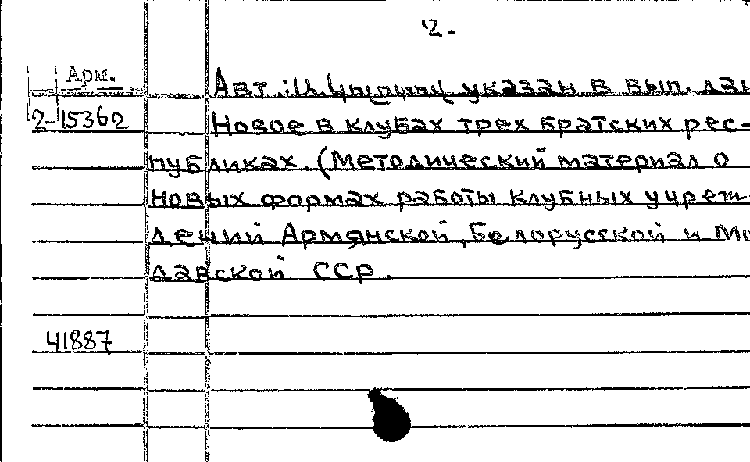 2.
Арм.
2-15362
Авт.: указан в вып. дан
Новое в клубах трех братских рес-
публиках. (Методический материал о
новых формах работы клубных учреж-
дений Армянской, Белорусской и Мо
давской ССР.
41887